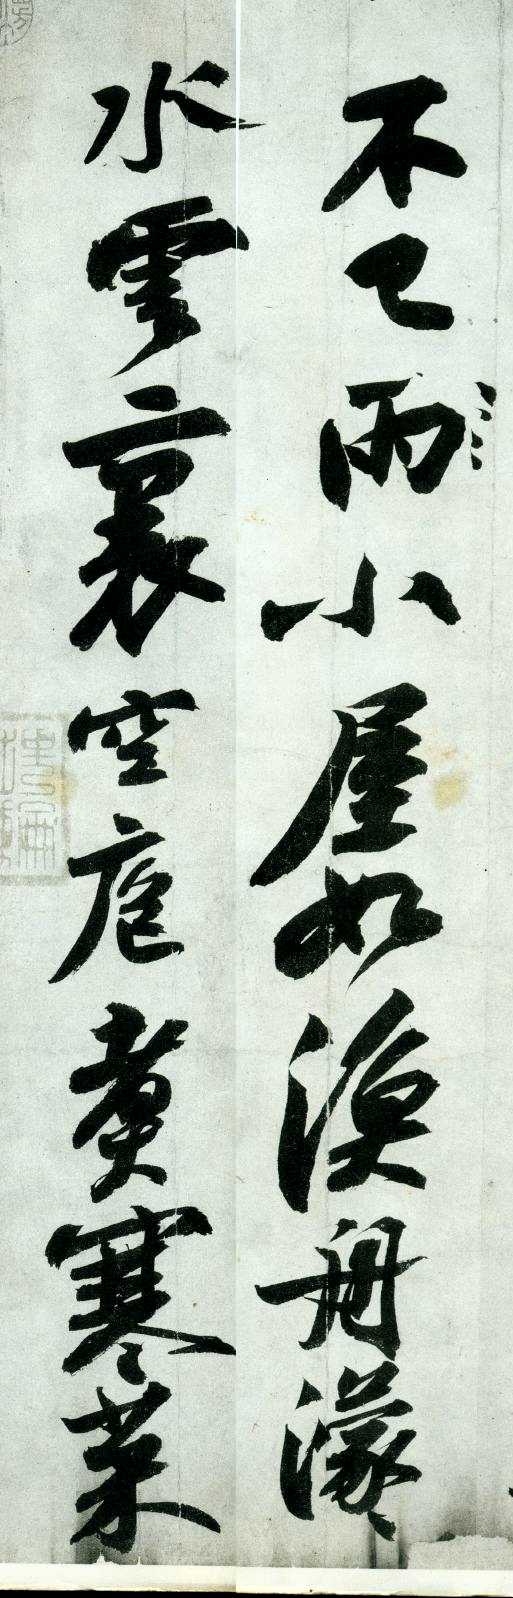 不已雨小屋如漁舟濛々
水雲裏空庖煮寒菜